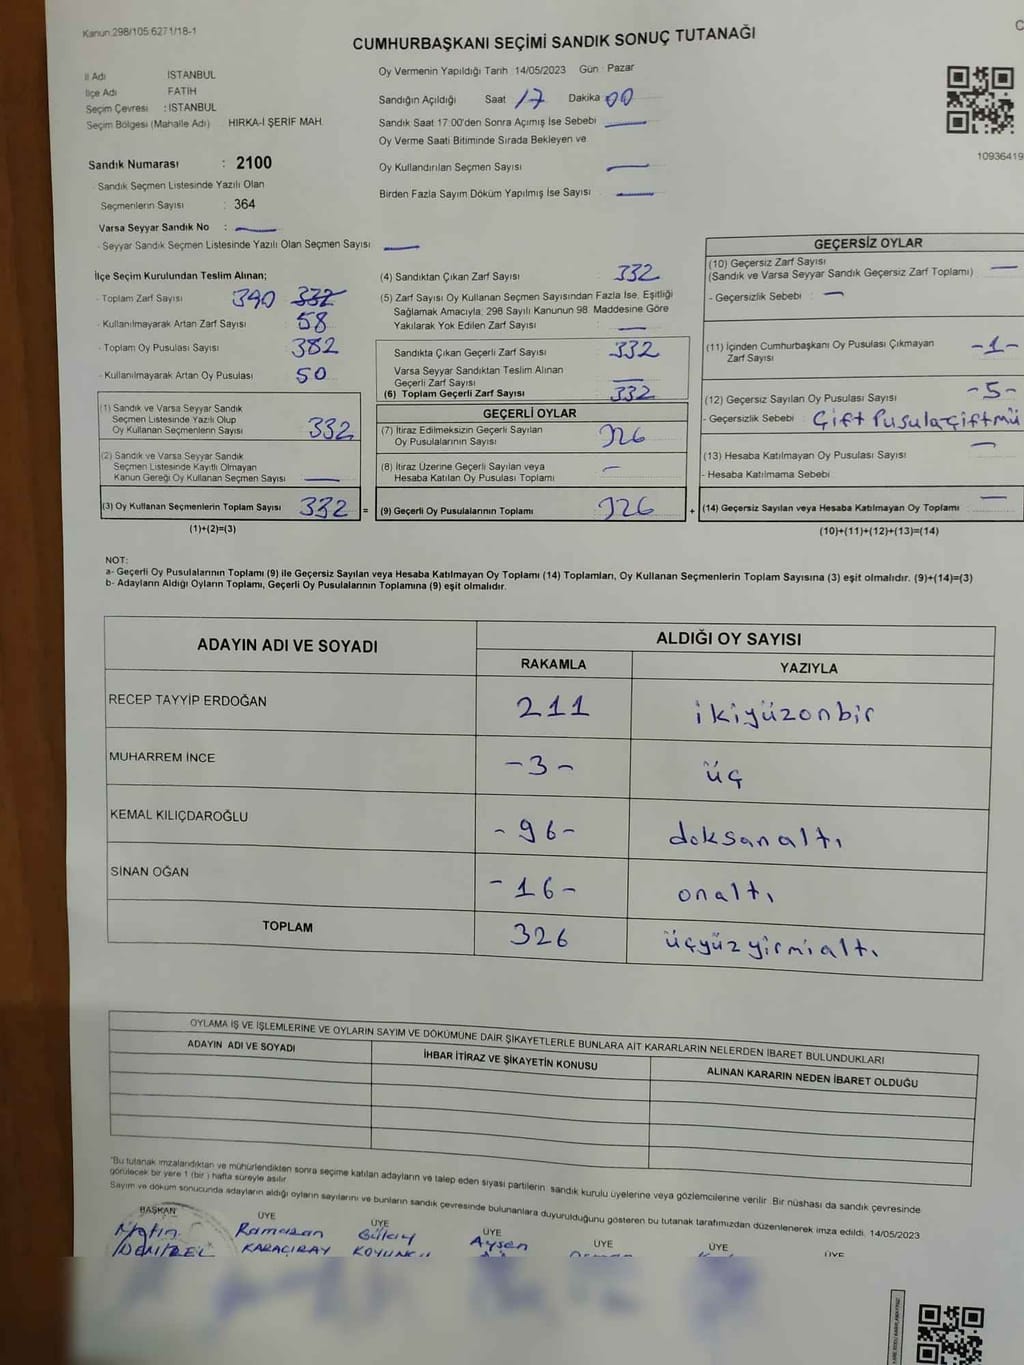 Kanun 298/105 6271/18-1
CUMHURBAŞKANI SEÇİMİ SANDIK SONUÇ TUTANAĞI
C
İl Adı İSTANBUL
İlçe Adı FATİH
Seçim Çevresi : İSTANBUL
Seçim Bölgesi (Mahalle Adı) HIRKA-İ ŞERİF MAH.
Oy Vermenin Yapıldığı Tarih 14/05/2023 Gün : Pazar
Sandığın Açıldığı Saat 17 Dakika 00
Sandık Saat 17.00'den Sonra Açımış İse Sebebi —
Oy Verme Saati Bitiminde Sırada Bekleyen ve
Oy Kullandırılan Seçmen Sayısı —
Birden Fazla Sayım Döküm Yapılmış İse Sayısı —
10936419
Sandık Numarası : 2100
- Sandık Seçmen Listesinde Yazılı Olan
Seçmenlerin Sayısı : 364
Varsa Seyyar Sandık No : —
- Seyyar Sandık Seçmen Listesinde Yazılı Olan Seçmen Sayısı —
İlçe Seçim Kurulundan Teslim Alınan;
- Toplam Zarf Sayısı 390 332
- Kullanılmayarak Artan Zarf Sayısı 58
- Toplam Oy Pusulası Sayısı 382
- Kullanılmayarak Artan Oy Pusulası 50
(1) Sandık ve Varsa Seyyar Sandık
Seçmen Listesinde Yazılı Olup
Oy Kullanan Seçmenlerin Sayısı 332
(2) Sandık ve Varsa Seyyar Sandık
Seçmen Listesinde Kayıtlı Olmayan
Kanun Gereği Oy Kullanan Seçmen Sayısı —
(3) Oy Kullanan Seçmenlerin Toplam Sayısı 332 =
(1)+(2)=(3)
(4) Sandıktan Çıkan Zarf Sayısı 332
(5) Zarf Sayısı Oy Kullanan Seçmen Sayısından Fazla İse, Eşitliği
Sağlamak Amacıyla, 298 Sayılı Kanunun 98. Maddesine Göre
Yakılarak Yok Edilen Zarf Sayısı —
Sandıkta Çıkan Geçerli Zarf Sayısı 332
Varsa Seyyar Sandıktan Teslim Alınan
Geçerli Zarf Sayısı —
(6) Toplam Geçerli Zarf Sayısı 332
GEÇERLİ OYLAR
(7) İtiraz Edilmeksizin Geçerli Sayılan
Oy Pusulalarının Sayısı 326
(8) İtiraz Üzerine Geçerli Sayılan veya
Hesaba Katılan Oy Pusulası Toplamı —
(9) Geçerli Oy Pusulalarının Toplamı 326 +
GEÇERSİZ OYLAR
(10) Geçersiz Zarf Sayısı
(Sandık ve Varsa Seyyar Sandık Geçersiz Zarf Toplamı) —
- Geçersizlik Sebebi : —
(11) İçinden Cumhurbaşkanı Oy Pusulası Çıkmayan
Zarf Sayısı -1-
(12) Geçersiz Sayılan Oy Pusulası Sayısı -5-
- Geçersizlik Sebebi : Çift Pusula çift mü
(13) Hesaba Katılmayan Oy Pusulası Sayısı —
- Hesaba Katılmama Sebebi
(14) Geçersiz Sayılan veya Hesaba Katılmayan Oy Toplamı —
(10)+(11)+(12)+(13)=(14)
NOT:
a- Geçerli Oy Pusulalarının Toplamı (9) ile Geçersiz Sayılan veya Hesaba Katılmayan Oy Toplamı (14) Toplamları, Oy Kullanan Seçmenlerin Toplam Sayısına (3) eşit olmalıdır. (9)+(14)=(3)
b- Adayların Aldığı Oyların Toplamı, Geçerli Oy Pusulalarının Toplamına (9) eşit olmalıdır.
ADAYIN ADI VE SOYADI ALDIĞI OY SAYISI
RAKAMLA YAZIYLA
RECEP TAYYİP ERDOĞAN 211 ikiyüzonbir
MUHARREM İNCE -3- üç
KEMAL KILIÇDAROĞLU -96- doksanaltı
SİNAN OĞAN -16- onaltı
TOPLAM 326 üçyüzyirmialtı
OYLAMA İŞ VE İŞLEMLERİNE VE OYLARIN SAYIM VE DÖKÜMÜNE DAİR ŞİKAYETLERLE BUNLARA AİT KARARLARIN NELERDEN İBARET BULUNDUKLARI
ADAYIN ADI VE SOYADI İHBAR İTİRAZ VE ŞİKAYETİN KONUSU ALINAN KARARIN NEDEN İBARET OLDUĞU
"Bu tutanak imzalandıktan ve mühürlendikten sonra seçime katılan adayların ve talep eden siyasi partilerin, sandık kurulu üyelerine veya gözlemcilerine verilir. Bir nüshası da sandık çevresinde
görülecek bir yere 1 (bir) hafta süreyle asılır.
Sayım ve döküm sonucunda adayların aldığı oyların sayılarını ve bunların sandık çevresinde bulunanlara duyurulduğunu gösteren bu tutanak tarafımızdan düzenlenerek imza edildi. 14/05/2023
BAŞKAN ÜYE ÜYE ÜYE ÜYE ÜYE ÜYE
Metin Ramazan Gülay Aysen
DEMİREL KARAÇIRAY KOYUNCU